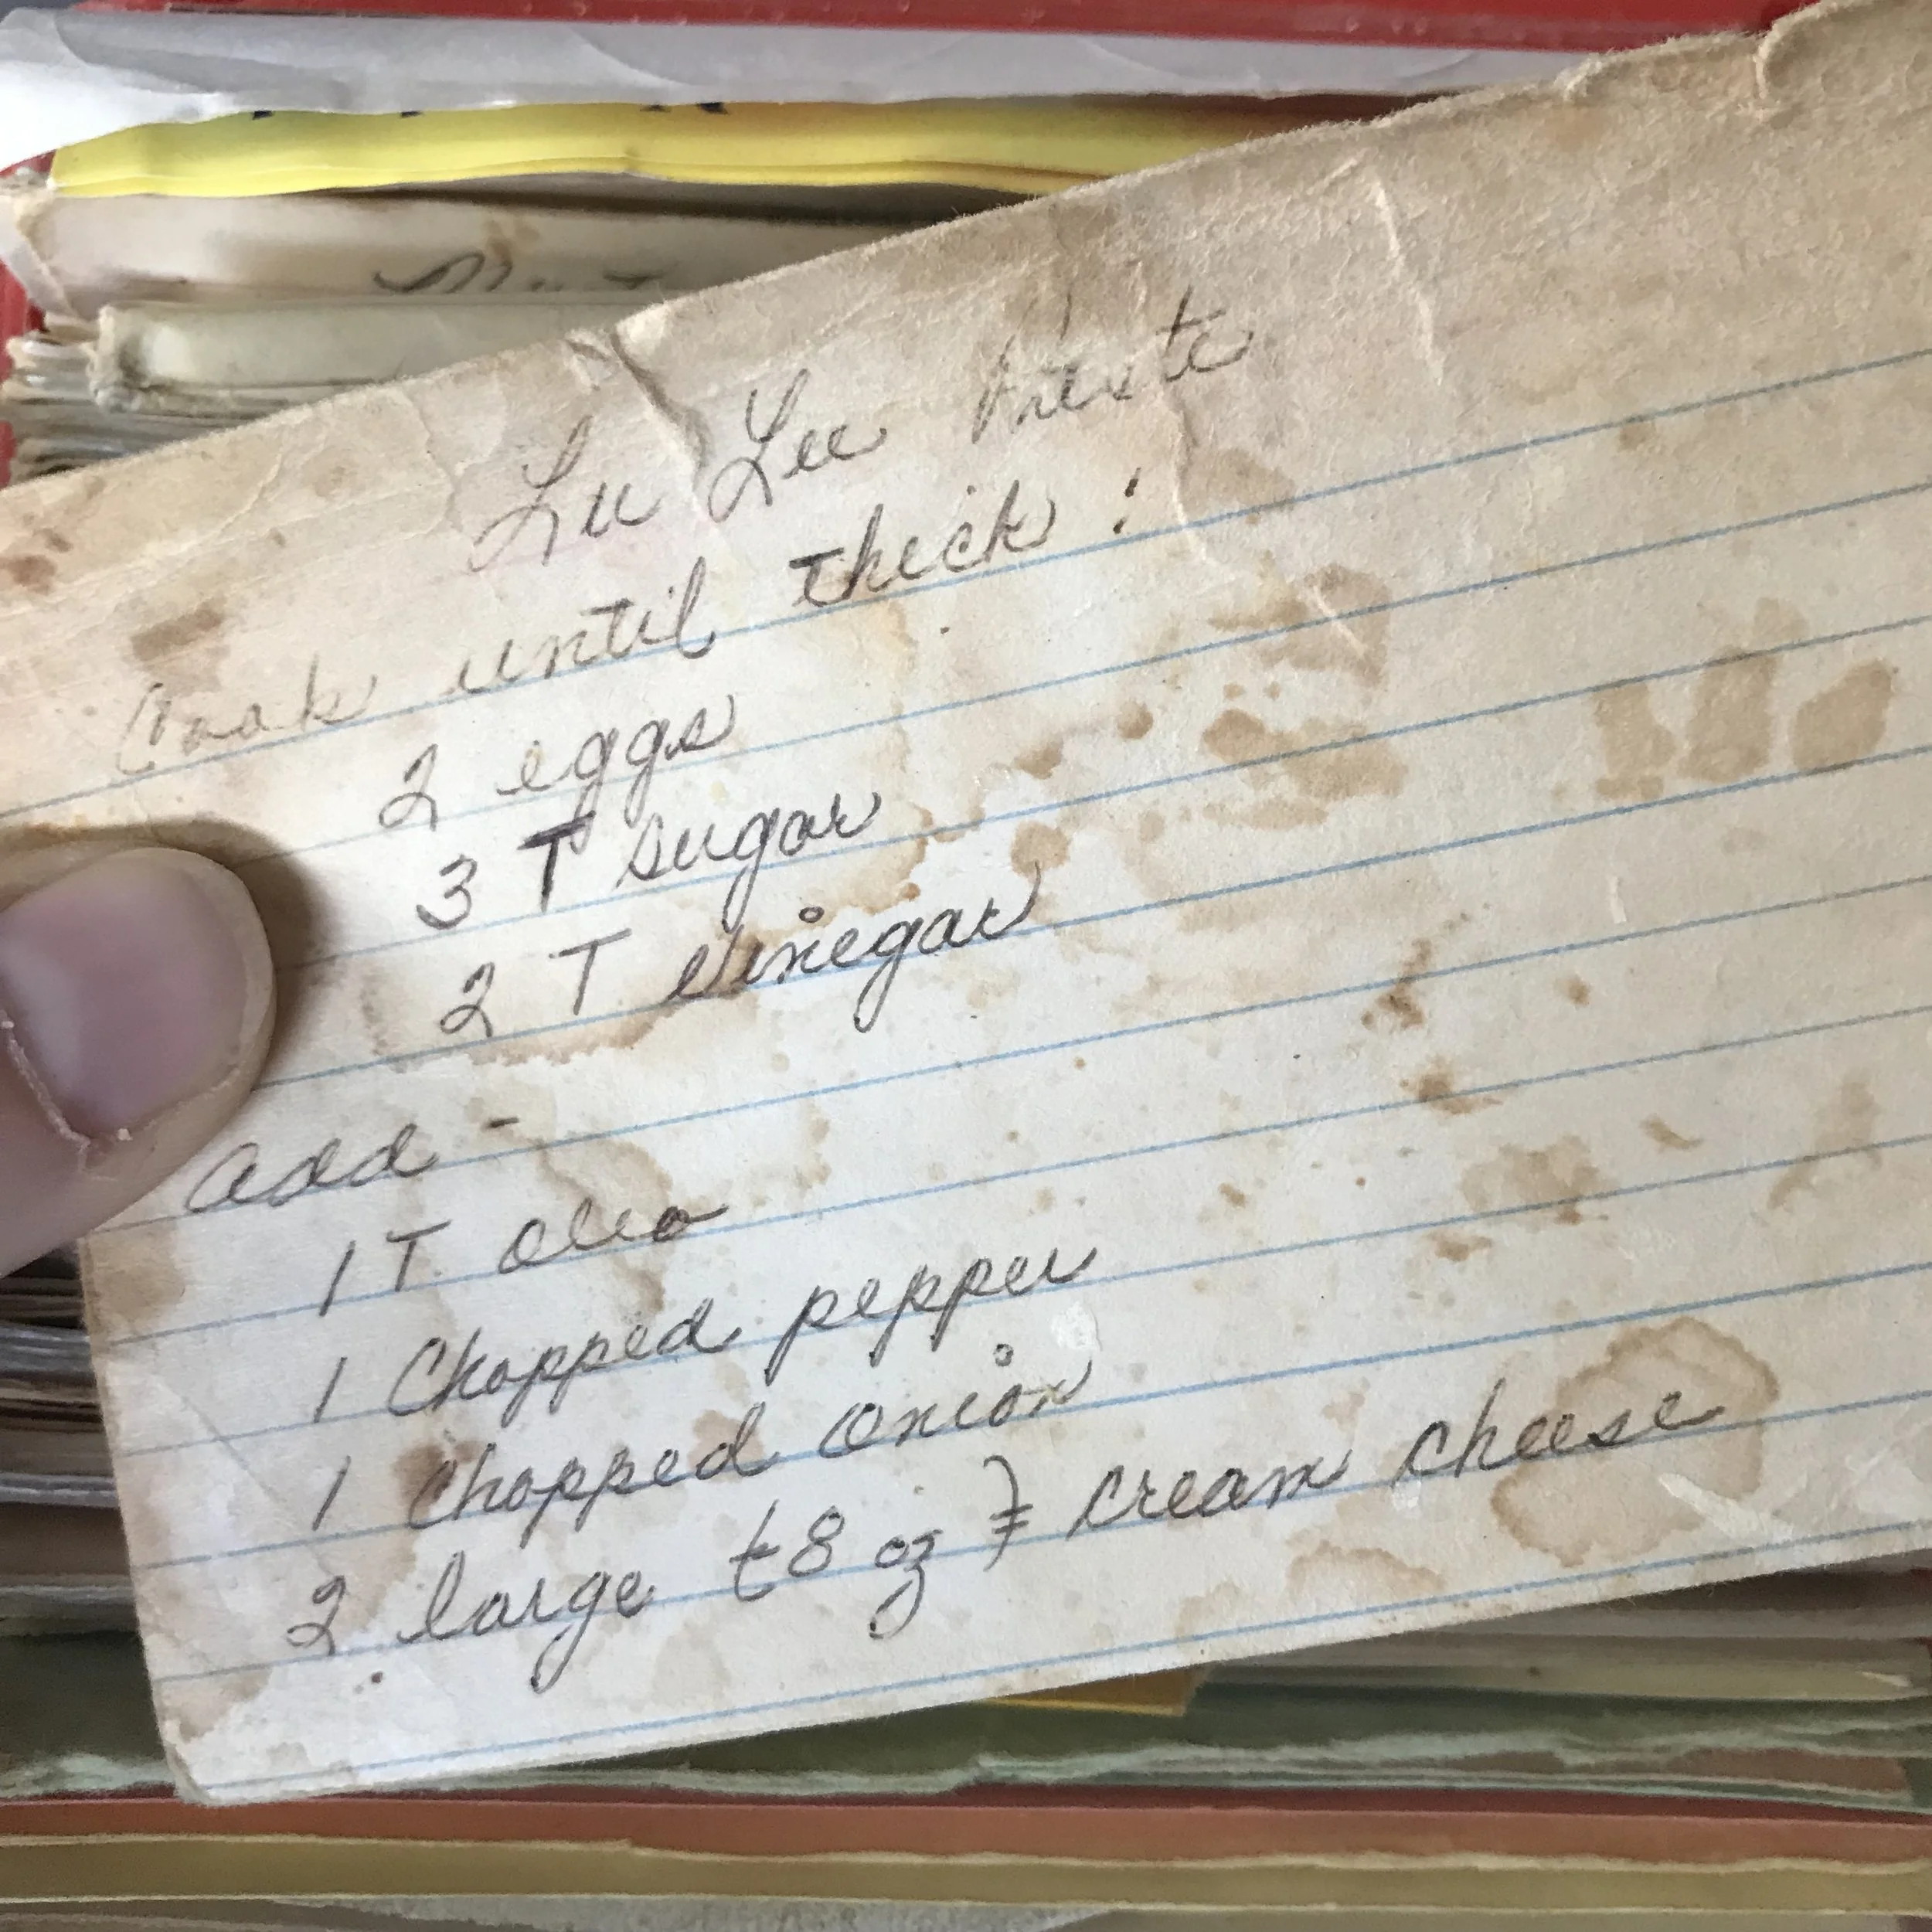 Lu Lee
Cook until thick:
2 eggs
3 T sugar
2 T vinegar
add -
1 T. oleo
1 Chopped pepper
1 chopped onion
2 large (8 oz) cream cheese